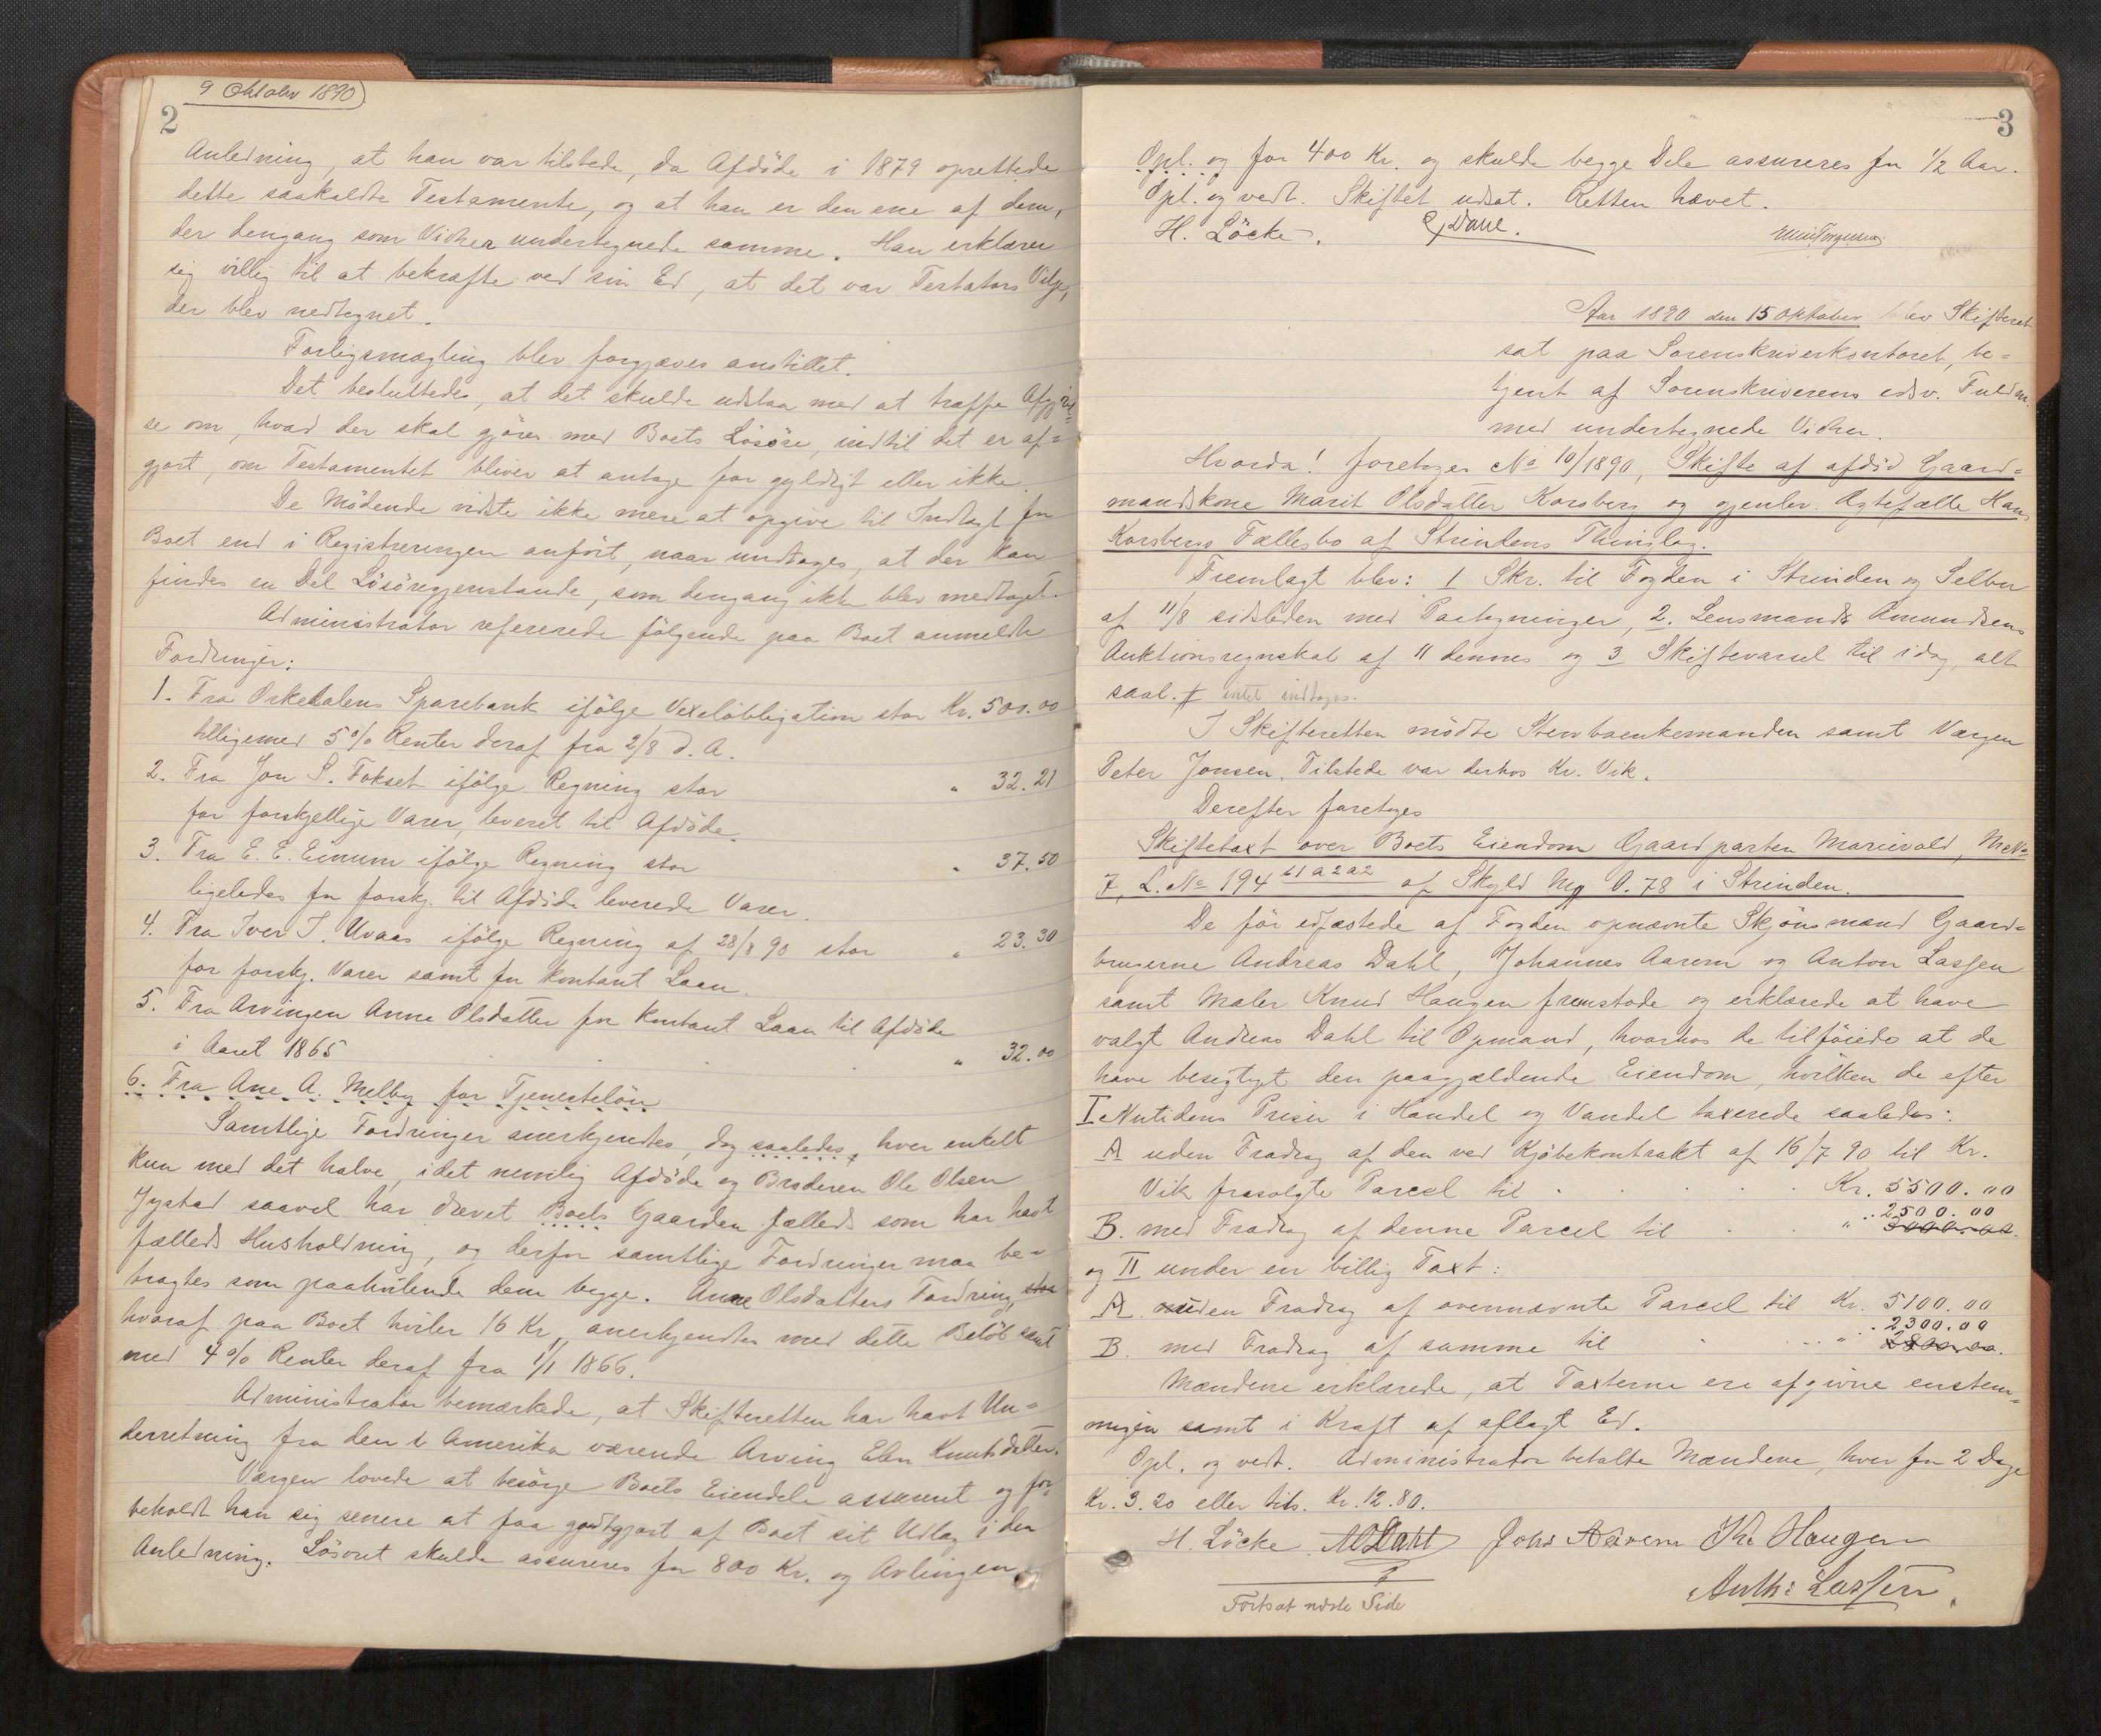 9 Oktober 1890
2
Anledning, at han var tilstede, da Afdöde i 1879 oprettede
dette saakaldte Testamente, og at han er den ene af dem,
der dengang som Vidner undertegnede samme. Han erklærer
sig villig til at bekræfte ved sin Ed, at det var Testators Vilje,
der blev nedtegnet.
Forligsmægling blev forgjæves anstillet.
Det besluttedes, at det skulde udstaa med at træffe Afgjörel=
se om, hvad der skal gjöres med Boets Lösöre, indtil det er af=
gjort, om Testamentet bliver at antage for gyldigt eller ikke.
De Mödende vidste ikke mere at opgive til Indtægt for
Boet end i Registreringen anfört, naar undtages, at der kan
findes en Del Lösöregjenstande, som dengang ikke blev medtaget.
Administrator refererede fölgende paa Boet anmeldte
Fordringer:
1. Fra Orkedalens Sparebank ifölge Vexelobligation stor Kr. 500.00
tilligemed 5% Renter deraf fra 2/8 d. A.
2. Fra Jon S. Fokset ifölge Regning stor " 32.21
for forskjellige Varer, leveret til Afdöde.
3. Fra E. E. Eimum ifölge Regning stor " 37.50
ligeledes for forskj. til Afdöde leverede Varer.
4. Fra Iver I. Uvaas ifölge Regning af 28/8 90 stor " 23.30
for forskj. Varer samt for kontant Laan.
5. Fra Arvingen Anne Olsdatter for kontant Laan til Afdöde
i Aaret 1865 " 32.00
6. Fra Ane A. Melby for Tjenestelön
Samtlige Fordringer anerkjendtes, dog saaledes, hver enkelt
kun med det halve, idet nemlig Afdöde og Broderen Ole Olsen
Jystad saavel har drevet Boets Gaarden fælleds som har havt
fælleds Husholdning, og derfor samtlige Fordringer maa be=
tragtes som paahvilende dem begge. Anne Olsdatters Fordring, stor
hvoraf paa Boet hviler 16 Kr, anerkjendtes med dette Belöb samt
med 4% Renter deraf fra 1/1 1866.
Administrator bemærkede, at Skifteretten har havt Un=
derretning fra den i Amerika værende Arving Elen Knutsdatter.
Værgen lovede at besörge Boets Eiendele assureret og for=
beholdt han sig senere at faa godtgjort af Boet sit Udlæg i den
Anledning. Lösöret skulde assureres for 800 Kr. og Avlingen
3
Opl. og for 400 Kr. og skulde begge Dele assureres for 1/2 Aar.
Opl. og vedt. Skiftet udsat. Retten hævet.
H. Löcke. E Dahl.
Aar 1890 den 15 Oktober blev Skifteret
sat paa Sorenskriverkontoret, be=
tjent af Sorenskriverens edsv. Fuldm.
med undertegnede Vidner.
Hvorda! foretages No 10/1890, Skifte af afdöd Gaard=
mandskone Marit Olsdatter Korsberg og gjenlev. Ægtefælle Hans
Korsbergs Fællesbo af Strindens Thinglag.
Fremlagt blev: 1 Skr. til Fogden i Strinden og Selbu
af 11/8 sidstleden med Paategninger, 2. Lensmands Amundsens
Auktionsregnskab af 11 dennes og 3 Skiftevarsel til idag, alt
saal. # intet indtages.
I Skifteretten mödte Stervboenkemanden samt Værgen
Peter Jonsen. Tilstede var derhos Kr. Vik.
Derefter foretoges
Skiftetaxt over Boets Eiendom Gaardparten Marievold, M.No
7, L. No 194 61a2a2 af Skyld Mg 0.78 i Strinden.
De för edfæstede af Fogden opnævnte Skjönsmænd Gaard=
brugerne Andreas Dahl, Johannes Aarem og Anton Lassen
samt Maler Knud Haugen fremstode og erklærede at have
valgt Andreas Dahl til Opmand, hvorhos de tilföiede at de
have besigtiget den paagjældende Eiendom, hvilken de efter
I. Nutidens Priser i Handel og Vandel taxerede saaledes:
A uden Fradrag af den ved Kjöbekontrakt af 16/7 90 til Kr.
Vik frasolgte Parcel til Kr. 5500.00
2500.00
B. med Fradrag af denne Parcel til " 3000.00.
og II under en billig Taxt:
A. uden Fradrag af ovennævnte Parcel til Kr. 5100.00
2300.00
B. med Fradrag af samme til " 2800.00.
Mændene erklærede, at Taxterne ere afgivne enstem=
migen samt i Kraft af aflagt Ed.
Opl. og vedt. Administrator betalte Mændene, hver for 2 Dage
Kr. 3.20 eller tils. Kr. 12.80.
H. Löcke. A Dahl Johs Aarem Kn Haugen
Anth: Lassen.
Fortsat næste Side